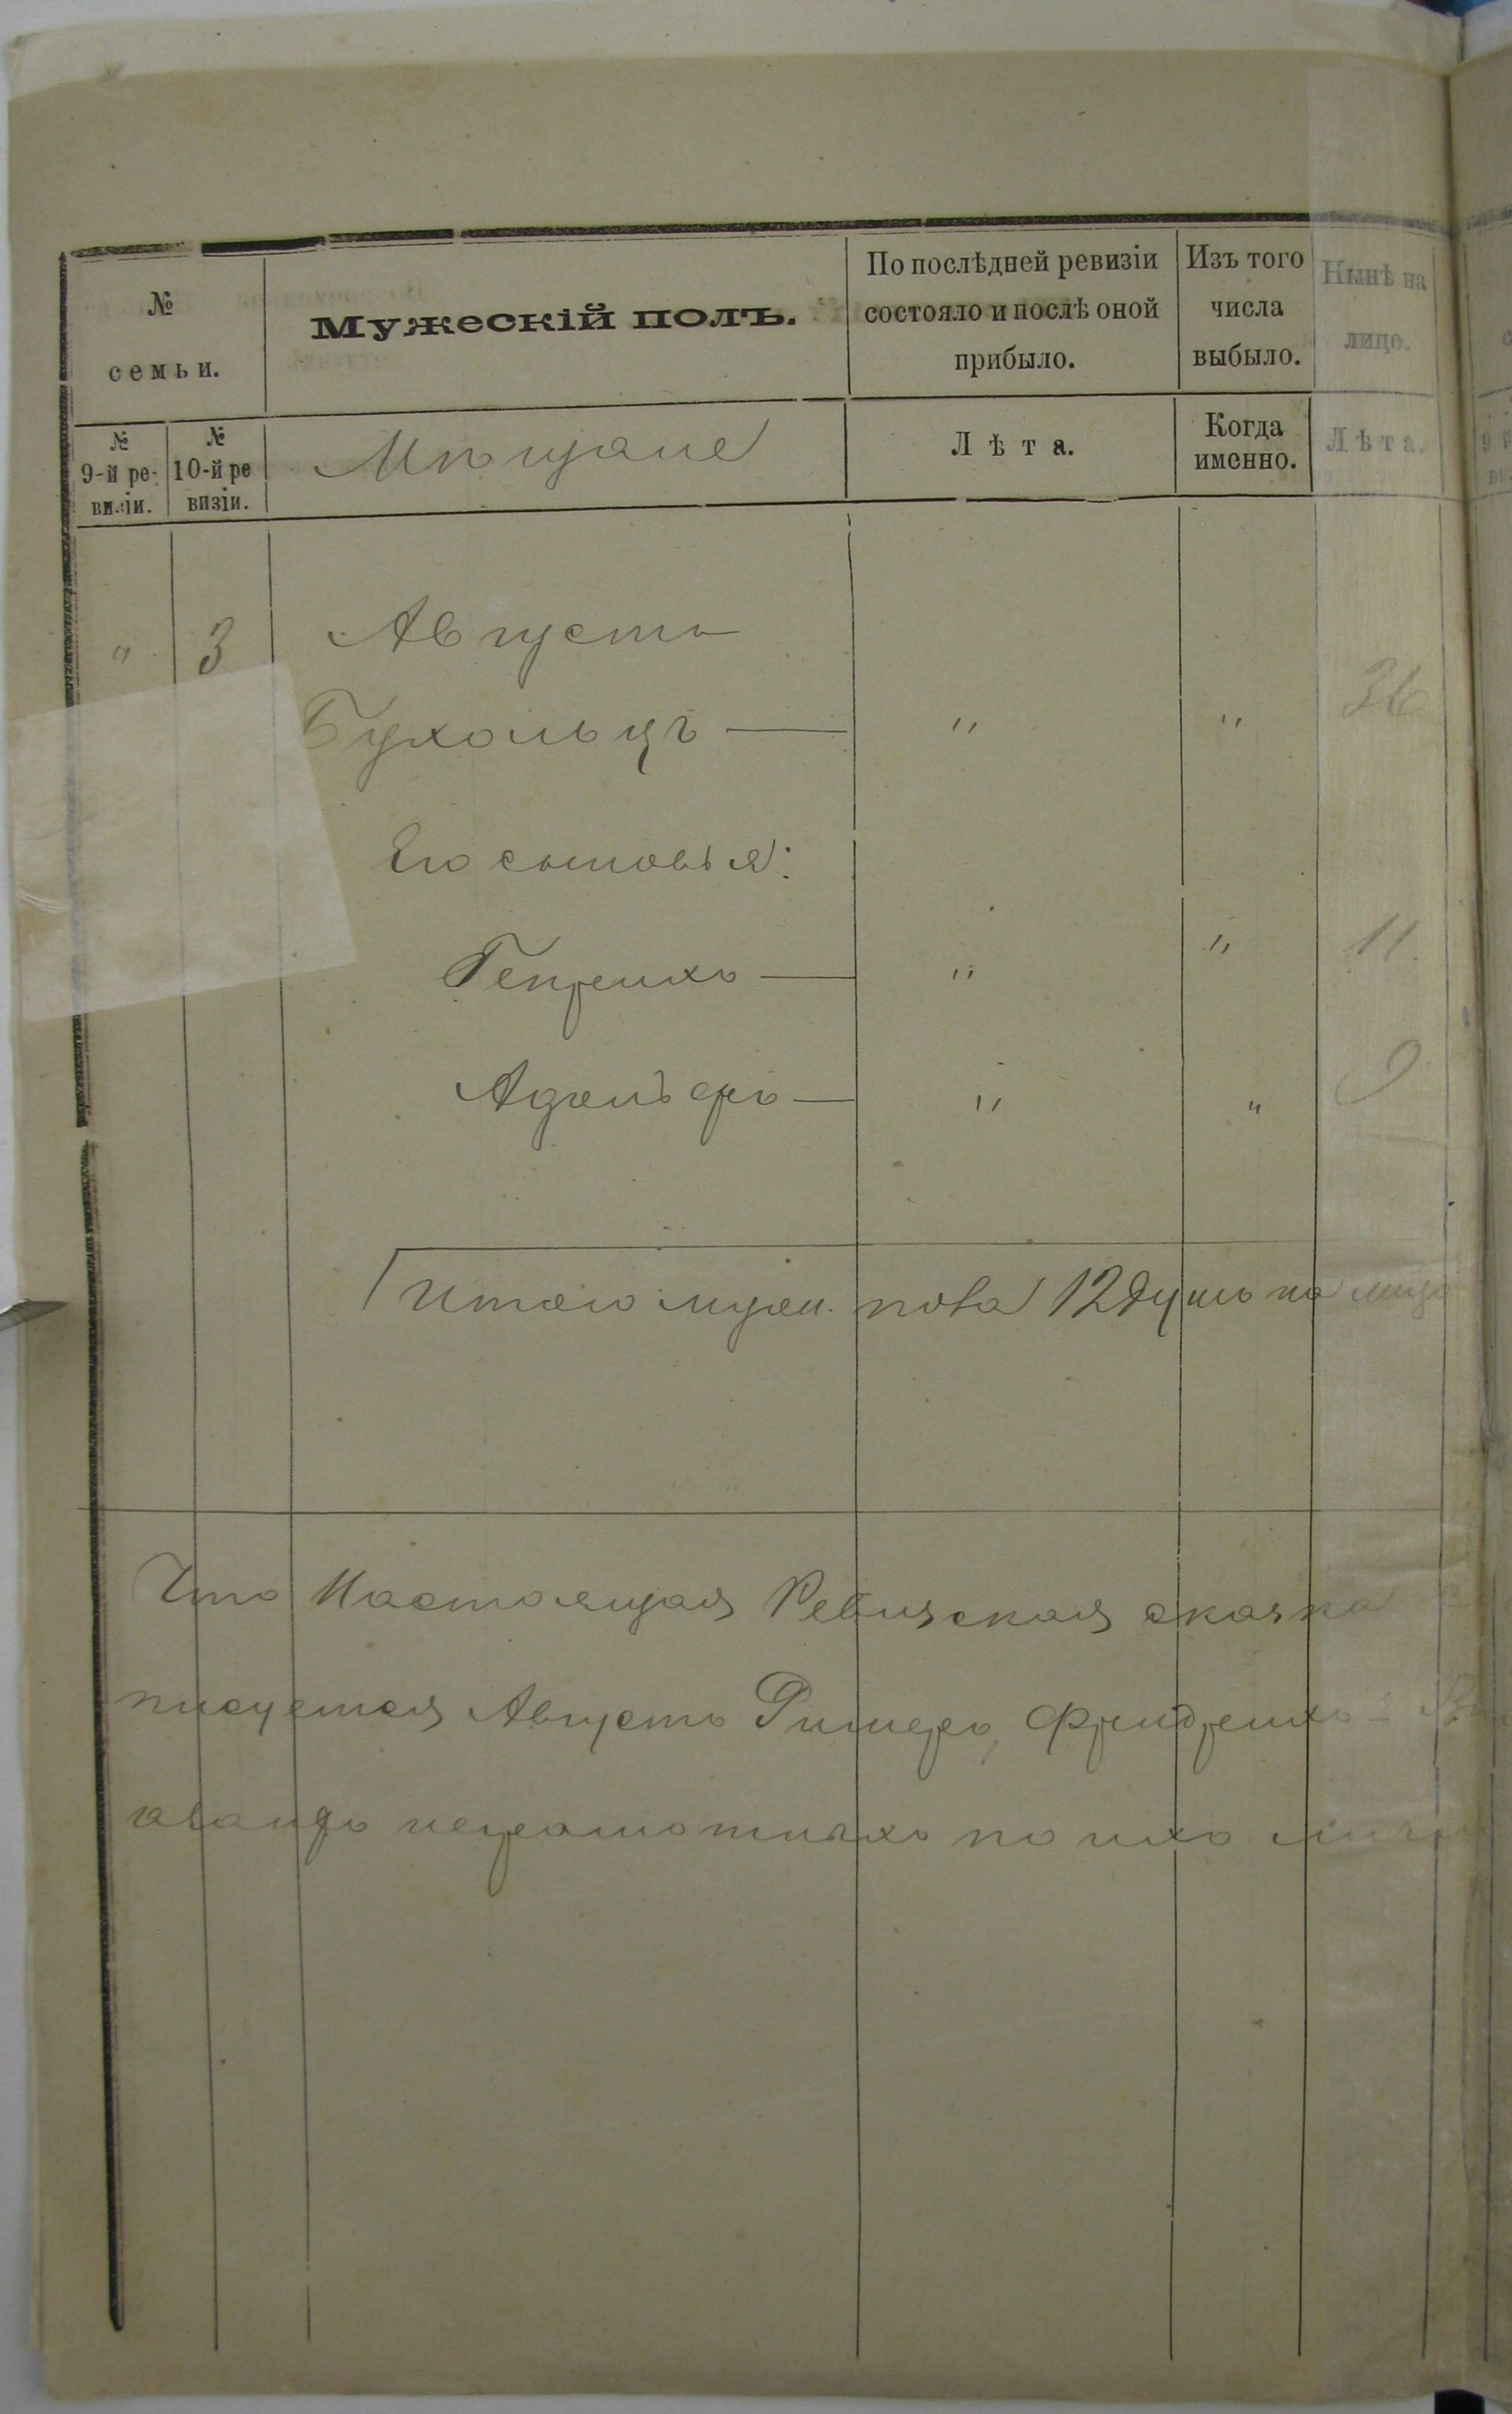 № семьи.
Мужескій полъ.
По послѣдней ревизіи состояло и послѣ оной прибыло.
Изъ того числа выбыло.
Нынѣ на лицо.
№ 9-й ревизіи.
№ 10-й ревизіи.
Мѣщане
Лѣта.
Когда именно.
Лѣта.
" 3 Августъ
Бухольцъ — " " 36
Его сыновья:
Генрихъ — " " 11
Адольфъ — " " 9
Итого муж. пола 12 душъ на лицо
Что Настоящая Ревизская сказка
писуется Августъ Фридрихъ
неграмотныхъ по ихъ